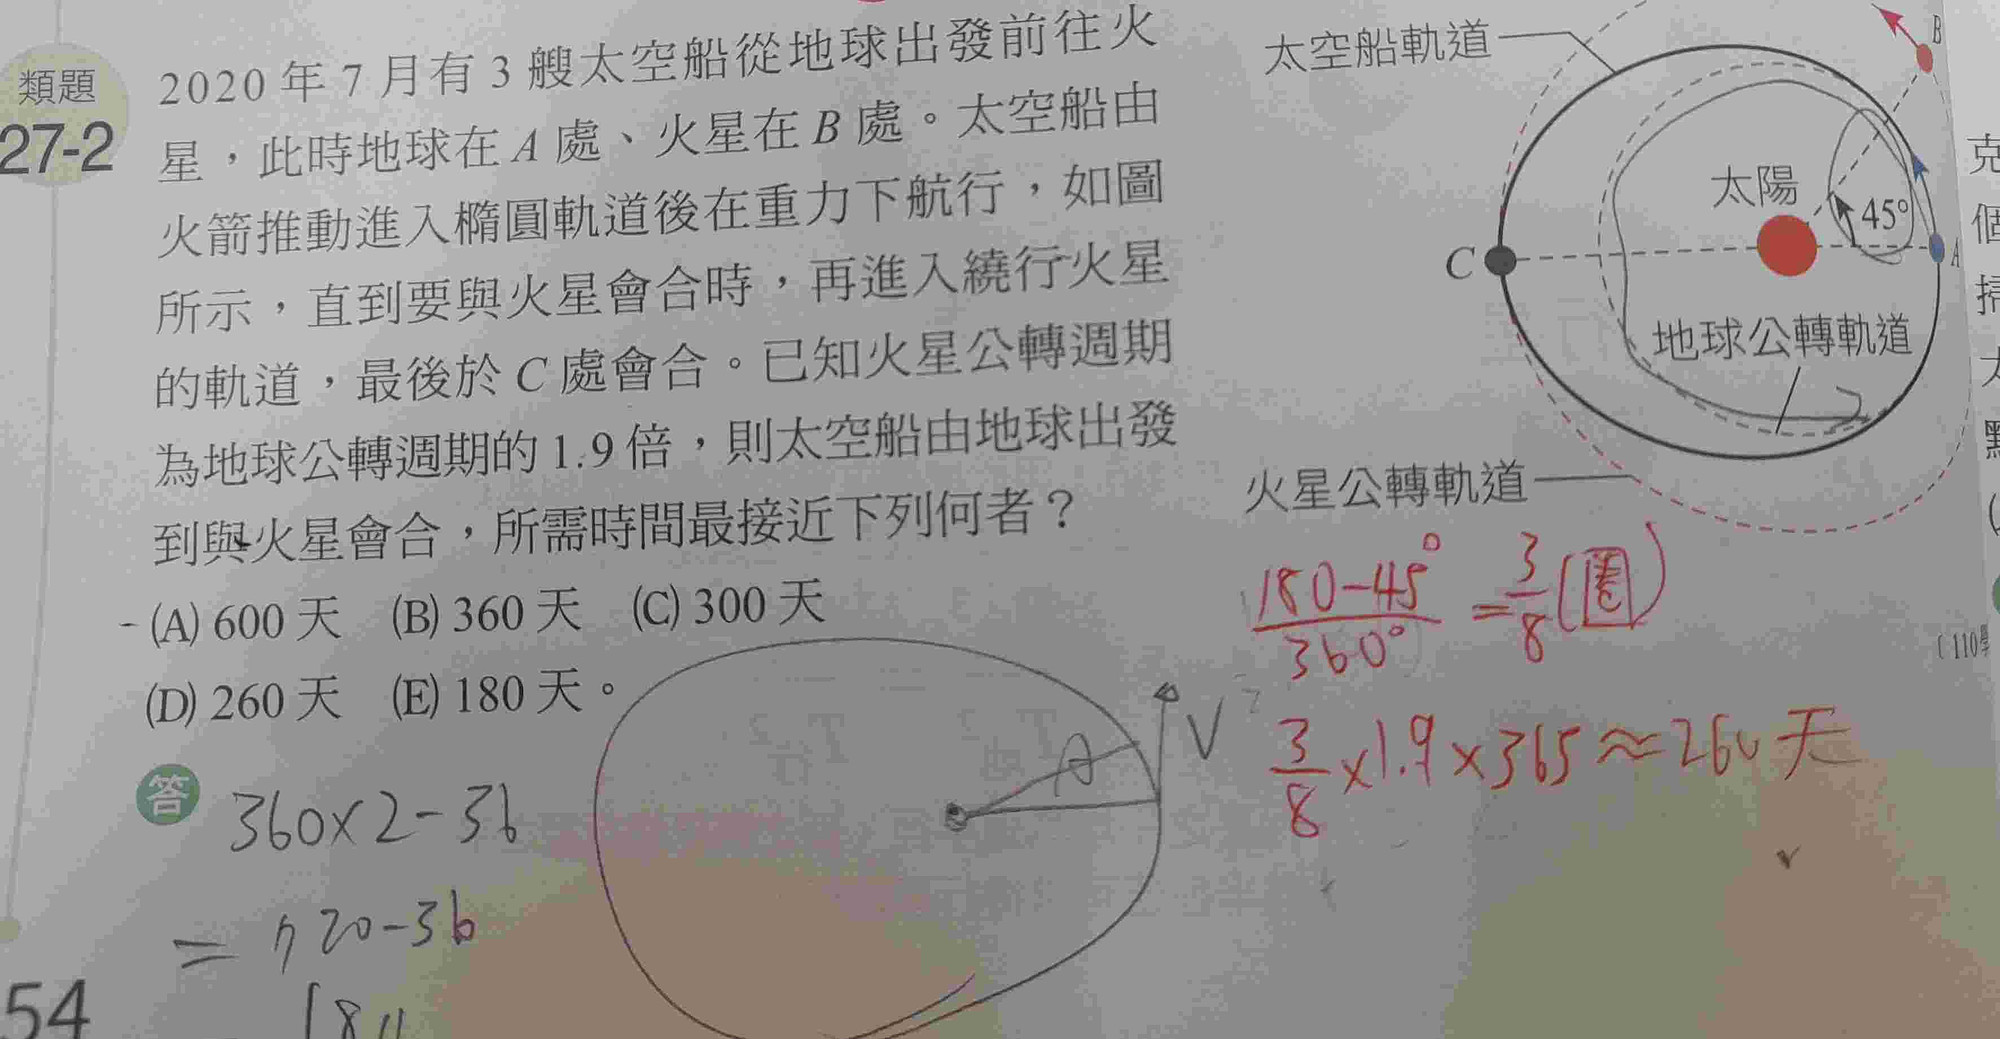 類題
27-2
2020 年 7 月有 3 艘太空船從地球出發前往火
星，此時地球在 A 處、火星在 B 處。太空船由
火箭推動進入橢圓軌道後在重力下航行，如圖
所示，直到要與火星會合時，再進入繞行火星
的軌道，最後於 C 處會合。已知火星公轉週期
為地球公轉週期的 1.9 倍，則太空船由地球出發
到與火星會合，所需時間最接近下列何者？
(A) 600 天 (B) 360 天 (C) 300 天
(D) 260 天 (E) 180 天。
答
360×2-36
= 720-36
54
太空船軌道
B
太陽
45°
C
A
地球公轉軌道
火星公轉軌道
180-45° / 360° = 3/8 (圈)
3/8 × 1.9 × 365 ≈ 260 天
A
V
克
個
掃
太
〔110學